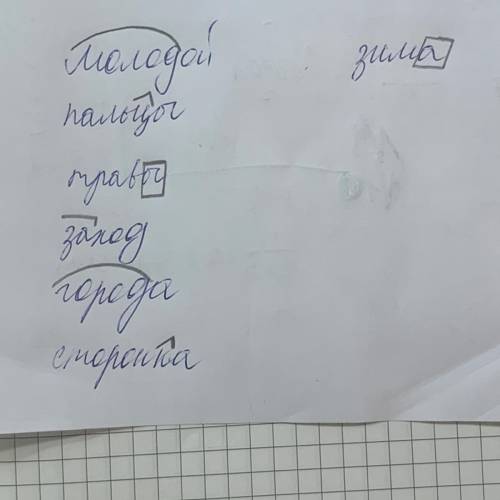 молодой зима
пальцы
травы
заход
города
сторонка